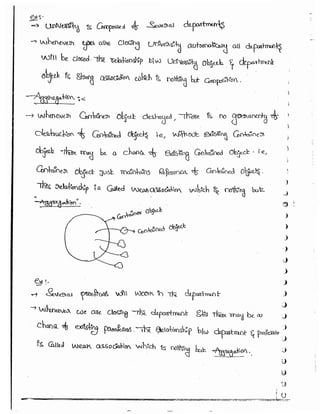 Ex:-
→ University is Composed of Several departments
→ whenever you are Closing University automatically all departments
will be closed The relationship b/w University object & department
object is Strong association which is nothing but Composition.
→ Aggregation :-
→ whenever Container Object destroyed, There is no guarantee of
destruction of Contained Objects i.e, without Existing Container
Object there may be a chance of Existing Contained Object. i.e,
Container Object just maintains Reference of Contained Objects.
This Relationship is Called weak association which is nothing but
"Aggregation".
Container Object
Contained Object
Ex:-
→ Several professors will work in The department
→ whenever we are closing the department Still There may be a
chance of existing professors. The relationship b/w department & professor
is Called weak association which is nothing but Aggregation.